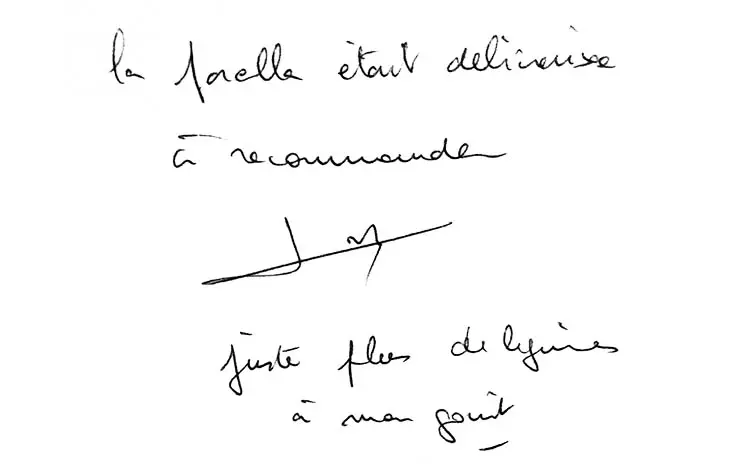 la paella était délicieuse
à recommander
juste plus de légumes
à mon goût